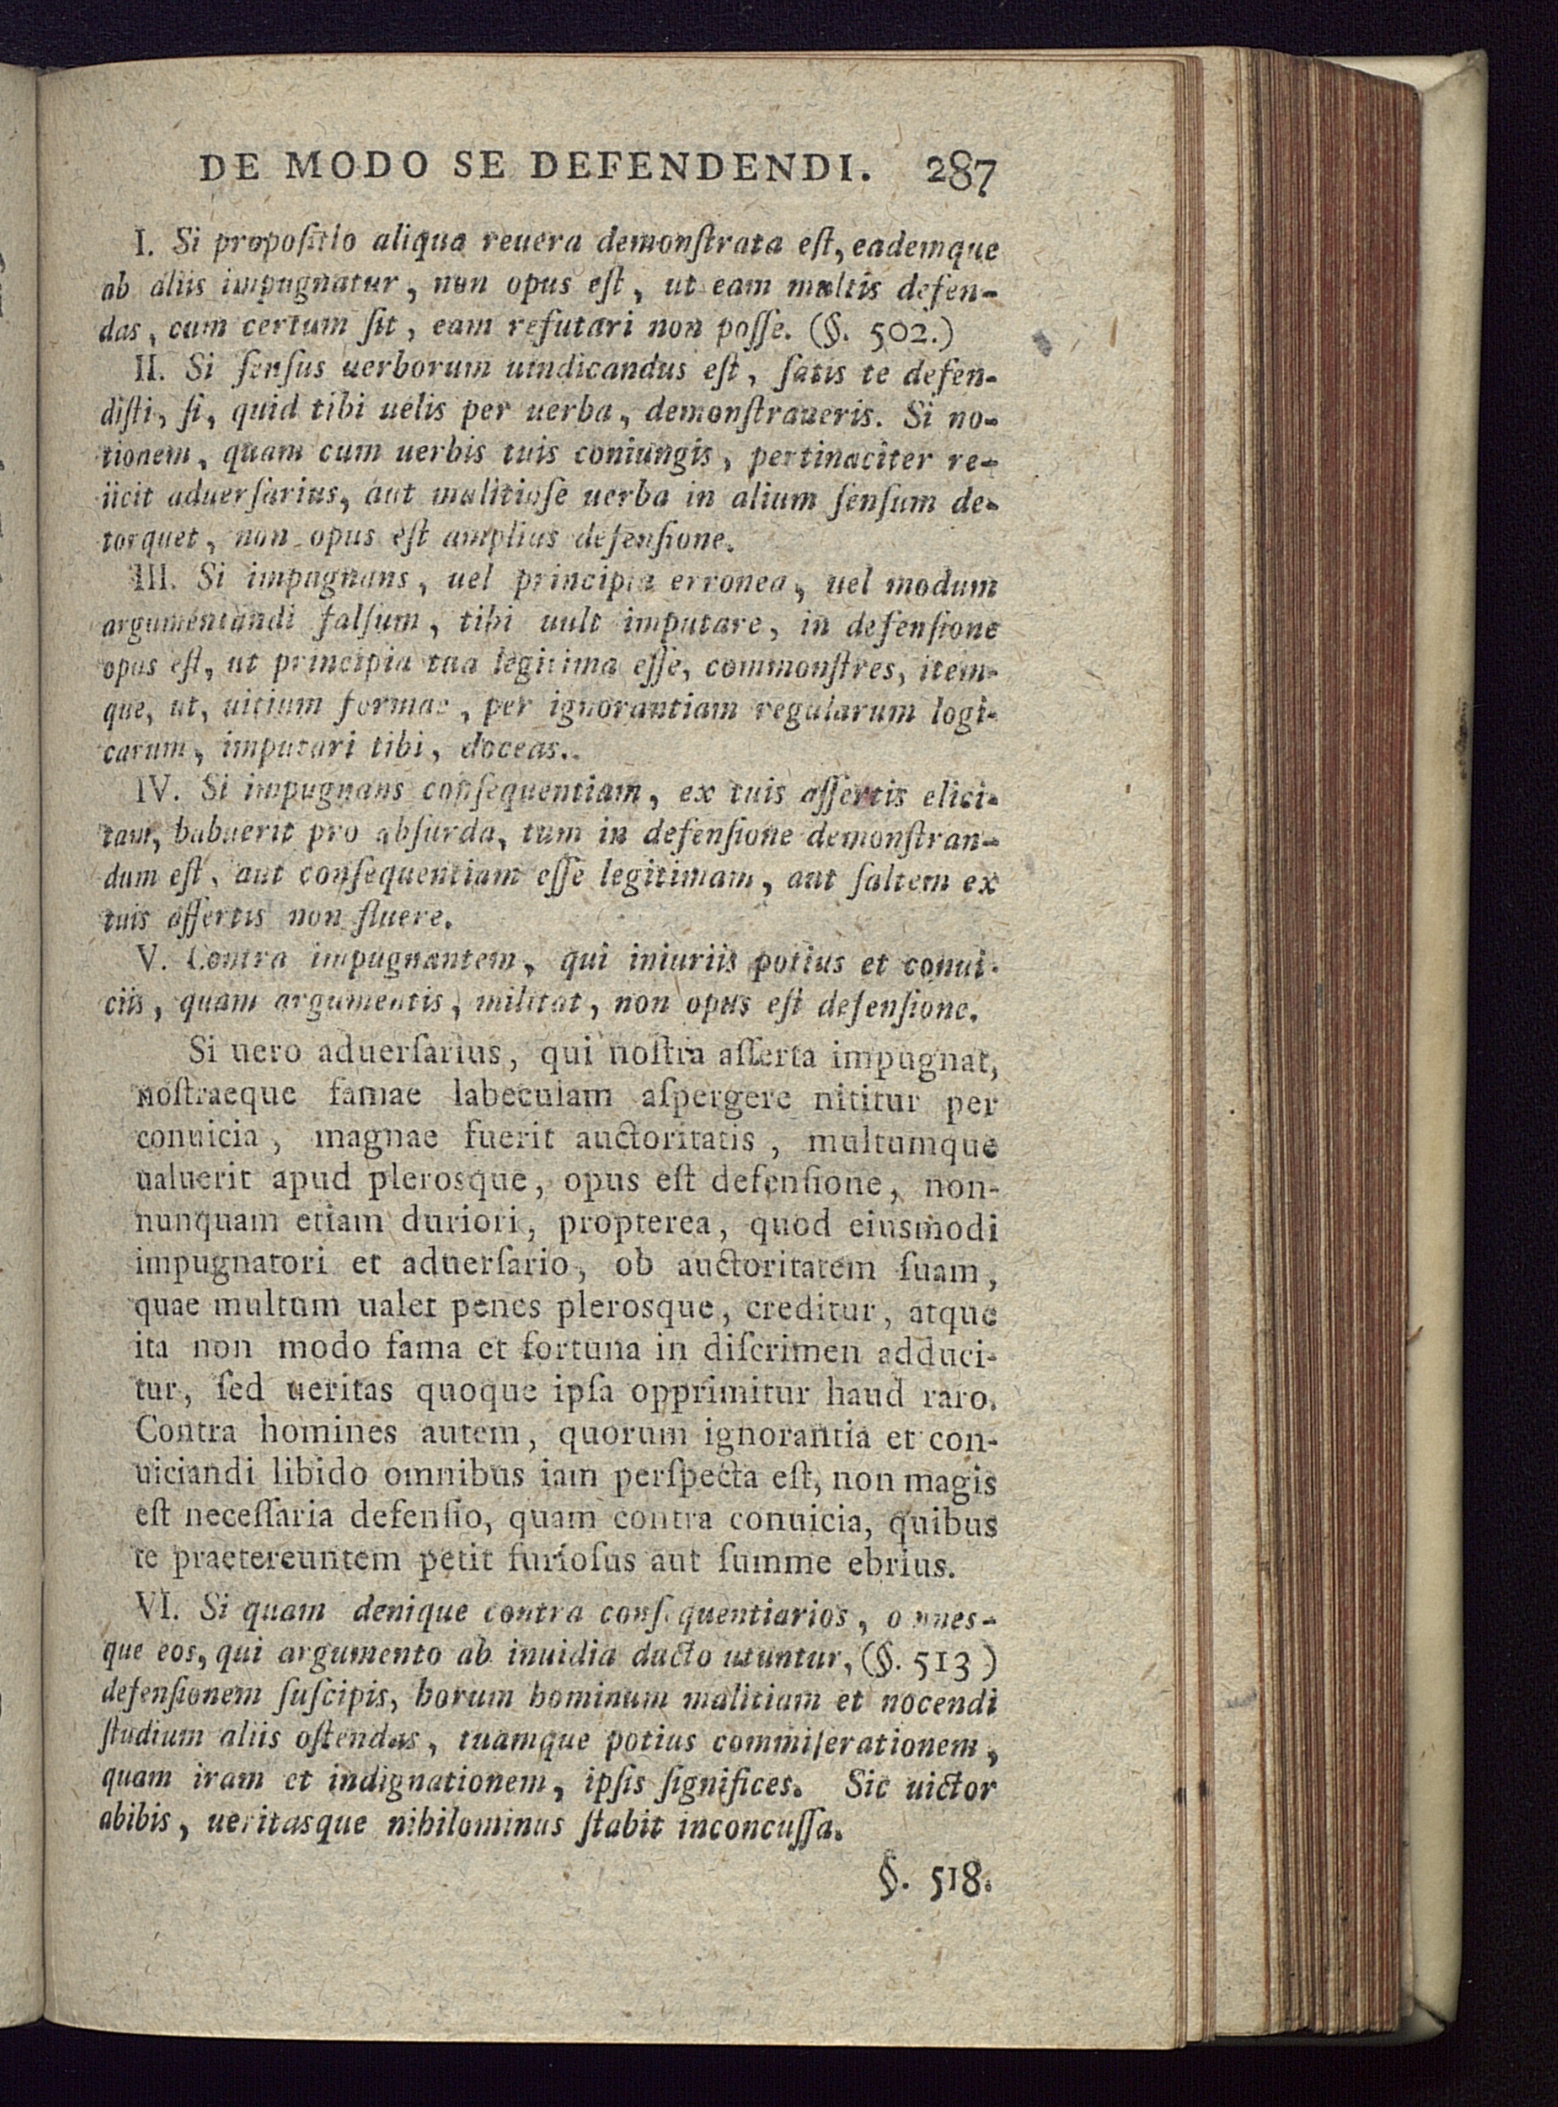 DE MODO SE DEFENDENDI. 287
I. Si propoſitio aliqua reuera demonſtrata eſt, eademque
ab aliis impugnatur, non opus eſt, ut eam multis defen-
das, cum certum ſit, eam refutari non poſſe. (§. 502.)
II. Si ſenſus uerborum uindicandus eſt, ſatis te defen-
diſti, ſi, quid tibi uelis per uerba, demonſtraueris. Si no-
tionem, quam cum uerbis tuis coniungis, pertinaciter re-
iicit aduerſarius, aut malitioſe uerba in alium ſenſum de-
torquet, non opus eſt amplius defenſione.
III. Si impugnans, uel principia erronea, uel modum
argumentandi falſum, tibi uult imputare, in defenſione
opus eſt, ut principia tua legitima eſſe, commonſtres, item-
que, ut, uitium formae, per ignorantiam regularum logi-
carum, imputari tibi, doceas.
IV. Si impugnans conſequentiam, ex tuis aſſertis elici-
tam, habuerit pro abſurda, tum in defenſione demonſtran-
dum eſt, aut conſequentiam eſſe legitimam, aut ſaltem ex
tuis aſſertis non fluere.
V. Contra impugnantem, qui iniuriis potius et conui-
ciis, quam argumentis, militat, non opus eſt defenſione.
Si uero aduerſarius, qui noſtra aſſerta impugnat,
noſtraeque famae labeculam aſpergere nititur per
conuicia, magnae fuerit auctoritatis, multumque
ualuerit apud plerosque, opus eſt defenſione, non-
nunquam etiam duriori, propterea, quod eiusmodi
impugnatori et aduerſario, ob auctoritatem ſuam,
quae multum ualet penes plerosque, creditur, atque
ita non modo fama et fortuna in diſcrimen adduci-
tur, ſed ueritas quoque ipſa opprimitur haud raro.
Contra homines autem, quorum ignorantia et con-
uiciandi libido omnibus iam perſpecta eſt, non magis
eſt neceſſaria defenſio, quam contra conuicia, quibus
te praetereuntem petit furioſus aut ſumme ebrius.
VI. Si quam denique contra conſequentiarios, omnes-
que eos, qui argumento ab inuidia ducto utuntur, (§. 513)
defenſionem ſuſcipis, horum hominum malitiam et nocendi
ſtudium aliis oſtendas, tuamque potius commiſerationem,
quam iram et indignationem, ipſis ſignifices. Sic uictor
abibis, ueritasque nihilominus ſtabit inconcuſſa.
§. 518.